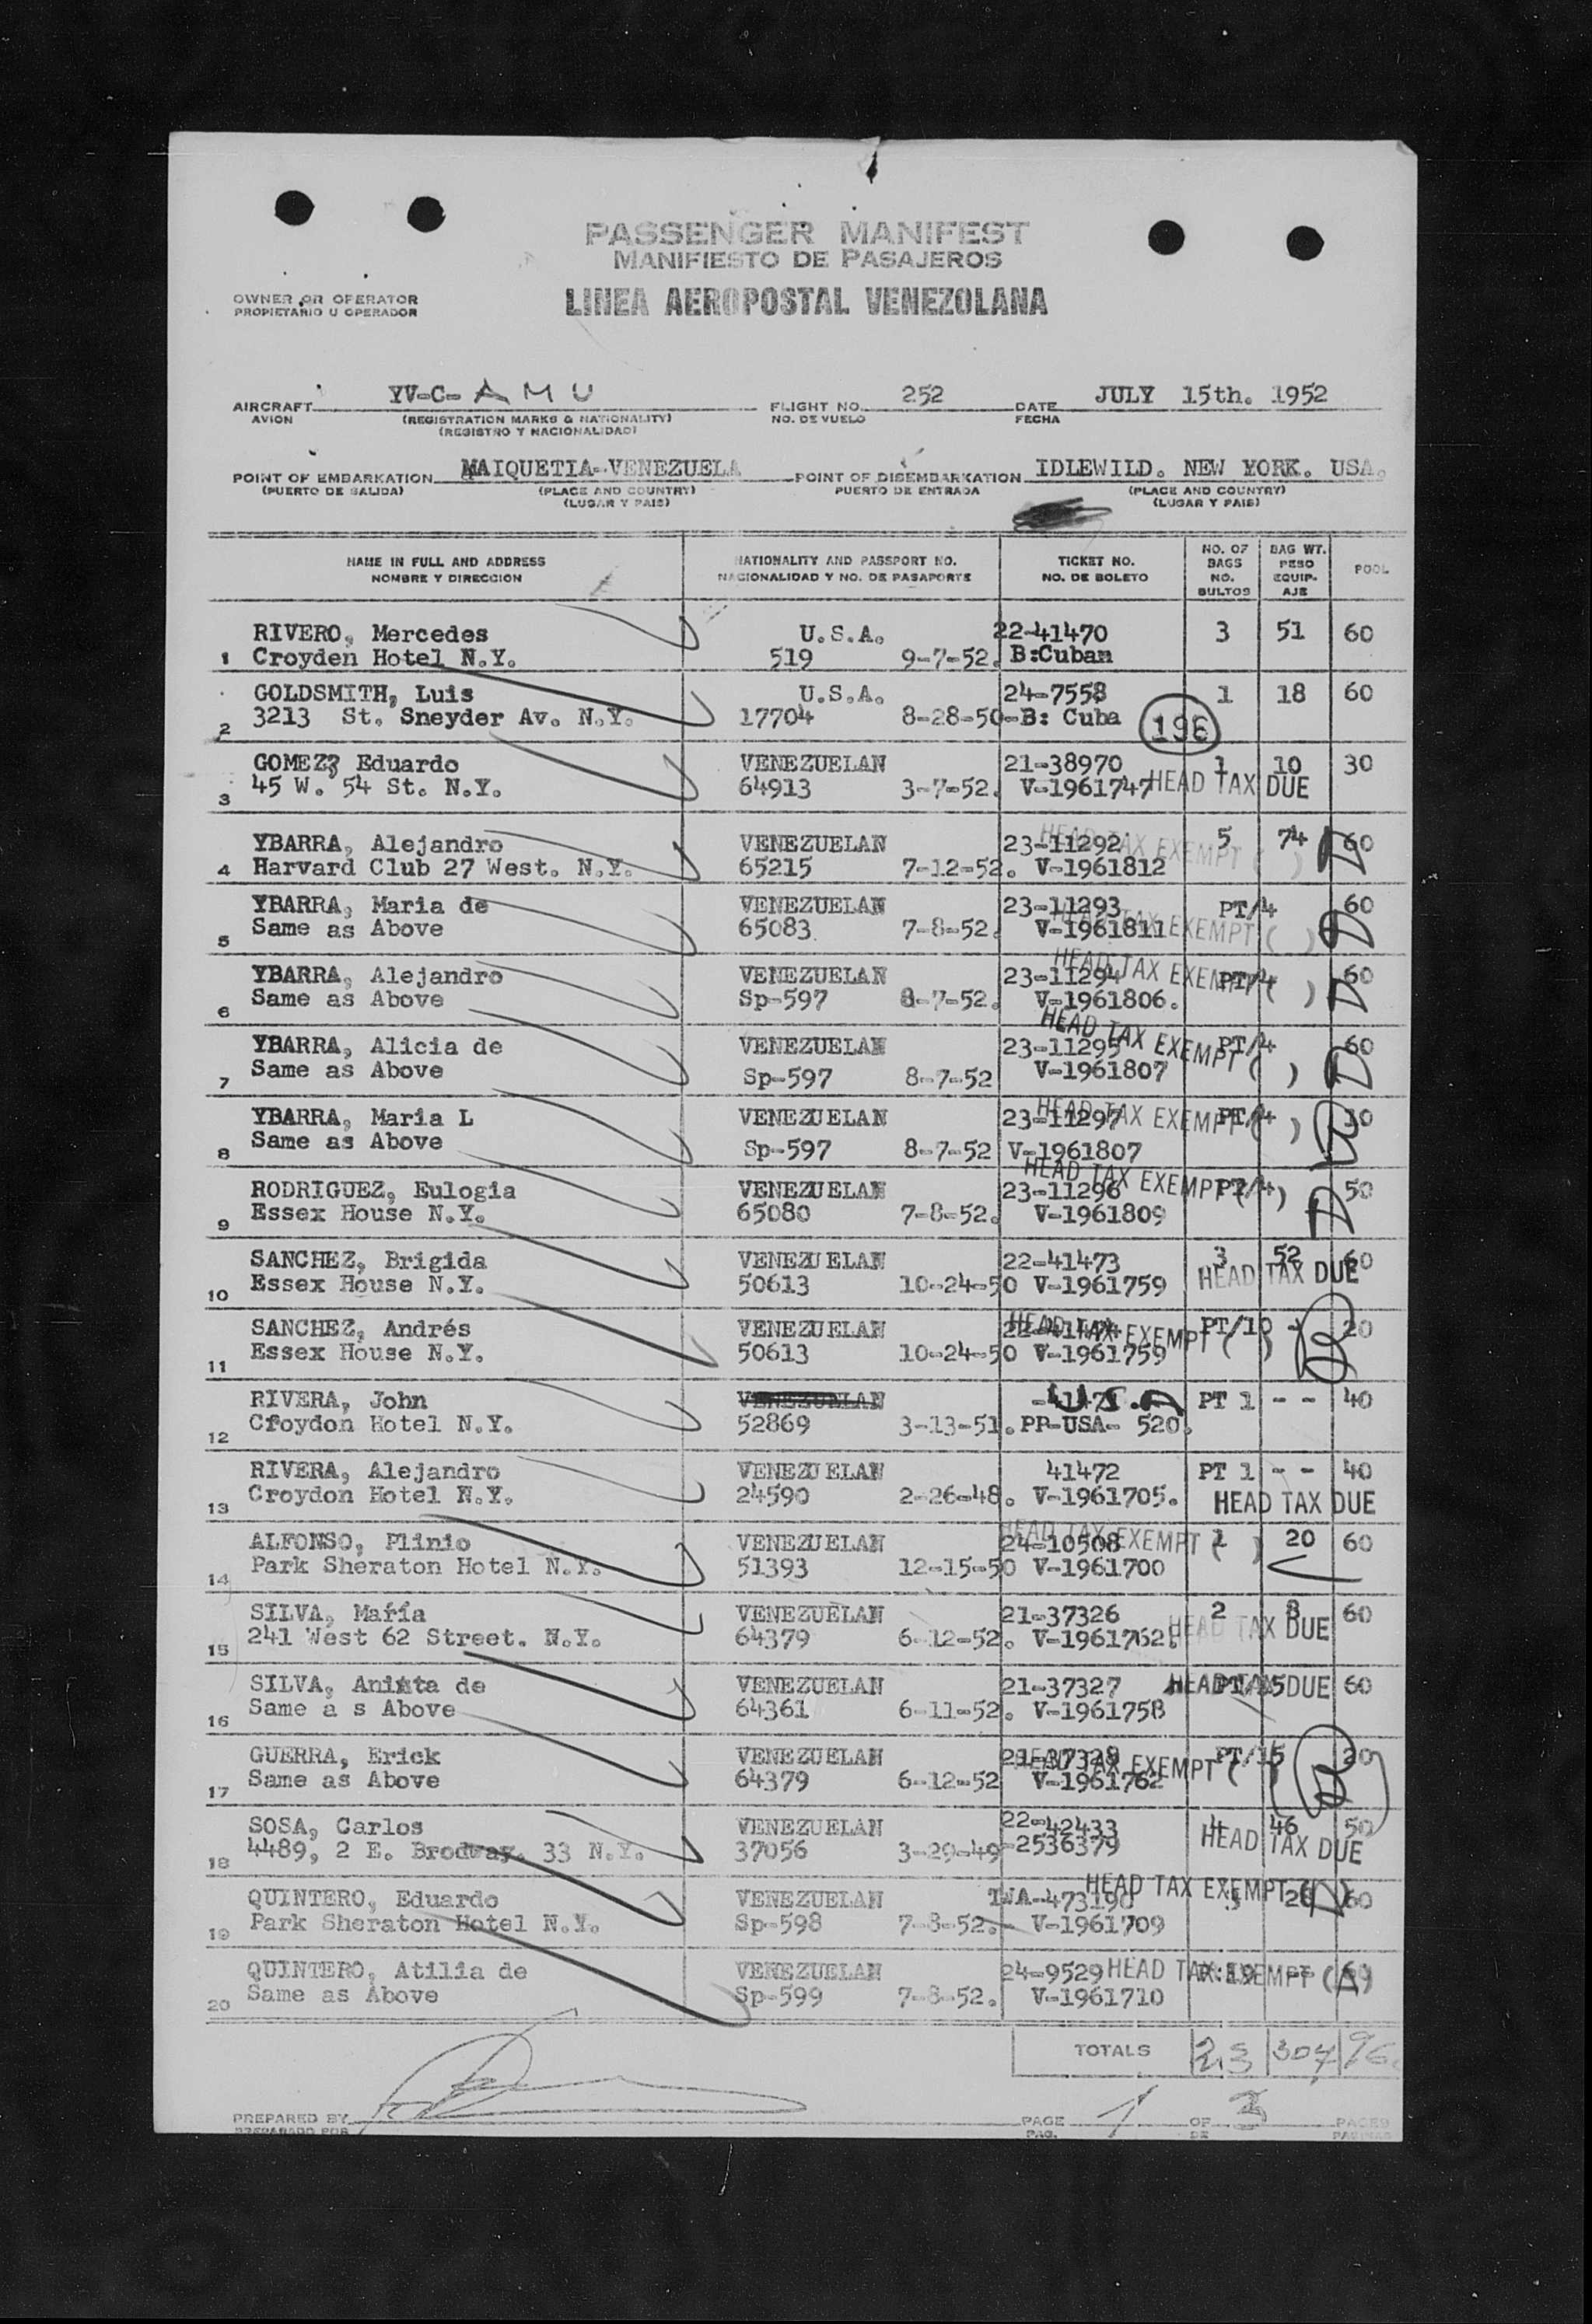 PASSENGER MANIFEST
MANIFIESTO DE PASAJEROS
OWNER OR OPERATOR
PROPIETARIO U OPERADOR
LINEA AEROPOSTAL VENEZOLANA
AIRCRAFT YV-C- A M U FLIGHT NO. 252 DATE JULY 15th. 1952
AVION (REGISTRATION MARKS & NATIONALITY) NO. DE VUELO FECHA
(REGISTRO Y NACIONALIDAD)
POINT OF EMBARKATION MAIQUETIA-VENEZUELA POINT OF DISEMBARKATION IDLEWILD. NEW YORK. USA.
(PUERTO DE SALIDA) (PLACE AND COUNTRY) PUERTO DE ENTRADA (PLACE AND COUNTRY)
(LUGAR Y PAIS) (LUGAR Y PAIS)
NAME IN FULL AND ADDRESS NATIONALITY AND PASSPORT NO. TICKET NO. NO. OF BAGS BAG WT. POOL
NOMBRE Y DIRECCION NACIONALIDAD Y NO. DE PASAPORTE NO. DE BOLETO NO. BULTOS PESO EQUIP-AJE
RIVERO, Mercedes U.S.A. 22-41470 3 51 60
1 Croyden Hotel N.Y. 519 9-7-52. B:Cuban
GOLDSMITH, Luis U.S.A. 24-7558 1 18 60
2 3213 St. Sneyder Av. N.Y. 17704 8-28-50-B: Cuba 196
GOMEZ, Eduardo VENEZUELAN 21-38970 1 10 30
3 45 W. 54 St. N.Y. 64913 3-7-52. V-1961747 HEAD TAX DUE
YBARRA, Alejandro VENEZUELAN 23-11292 5 74 60
HEAD TAX EXEMPT ( ) D
4 Harvard Club 27 West. N.Y. 65215 7-12-52. V-1961812
YBARRA, Maria de VENEZUELAN 23-11293 PT/4 60
HEAD TAX EXEMPT ( ) D
5 Same as Above 65083 7-8-52. V-1961811
YBARRA, Alejandro VENEZUELAN 23-11294 PT/4 60
HEAD TAX EXEMPT ( ) D
6 Same as Above Sp-597 8-7-52. V-1961806.
YBARRA, Alicia de VENEZUELAN 23-11295 PT/4 60
HEAD TAX EXEMPT ( ) D
7 Same as Above Sp-597 8-7-52 V-1961807
YBARRA, Maria L VENEZUELAN 23-11297 PT/4 10
HEAD TAX EXEMPT ( )
8 Same as Above Sp-597 8-7-52 V-1961807
RODRIGUEZ, Eulogia VENEZUELAN 23-11296 PT/4 50
HEAD TAX EXEMPT ( ) D
9 Essex House N.Y. 65080 7-8-52. V-1961809
SANCHEZ, Brigida VENEZUELAN 22-41473 3 52 60
10 Essex House N.Y. 50613 10-24-50 V-1961759 HEAD TAX DUE
SANCHEZ, Andrés VENEZUELAN PT/10 20
HEAD TAX EXEMPT ( ) B
11 Essex House N.Y. 50613 10-24-50 V-1961759
RIVERA, John VENEZUELAN -41471 U.S.A PT 1 - - 40
12 Croydon Hotel N.Y. 52869 3-13-51. PP-USA- 520.
RIVERA, Alejandro VENEZUELAN 41472 PT 1 - - 40
13 Croydon Hotel N.Y. 24590 2-26-48. V-1961705. HEAD TAX DUE
ALFONSO, Plinio VENEZUELAN 24-10508 1 20 60
HEAD TAX EXEMPT ( )
14 Park Sheraton Hotel N.Y. 51393 12-15-50 V-1961700
SILVA, María VENEZUELAN 21-37326 2 8 60
15 241 West 62 Street. N.Y. 64379 6-12-52. V-1961762. HEAD TAX DUE
SILVA, Anista de VENEZUELAN 21-37327 PT/15 60
HEAD TAX DUE
16 Same a s Above 64361 6-11-52. V-1961758
GUERRA, Erick VENEZUELAN 21-37328 PT/15 20
HEAD TAX EXEMPT ( ) B
17 Same as Above 64379 6-12-52 V-1961762
SOSA, Carlos VENEZUELAN 22-42433 4 46 50
18 4489, 2 E. Brodway. 33 N.Y. 37056 3-29-49 -2536379 HEAD TAX DUE
HEAD TAX EXEMPT ( )
QUINTERO, Eduardo VENEZUELAN TWA-473190 3 60
19 Park Sheraton Hotel N.Y. Sp-598 7-8-52. V-1961709
QUINTERO, Atilia de VENEZUELAN 24-9529 HEAD TAX EXEMPT (A)
20 Same as Above Sp-599 7-8-52. V-1961710
TOTALS 23 307 96
PREPARED BY PAGE 1 OF 3 PAGES
PREPARADO POR PAG. DE PAGINAS